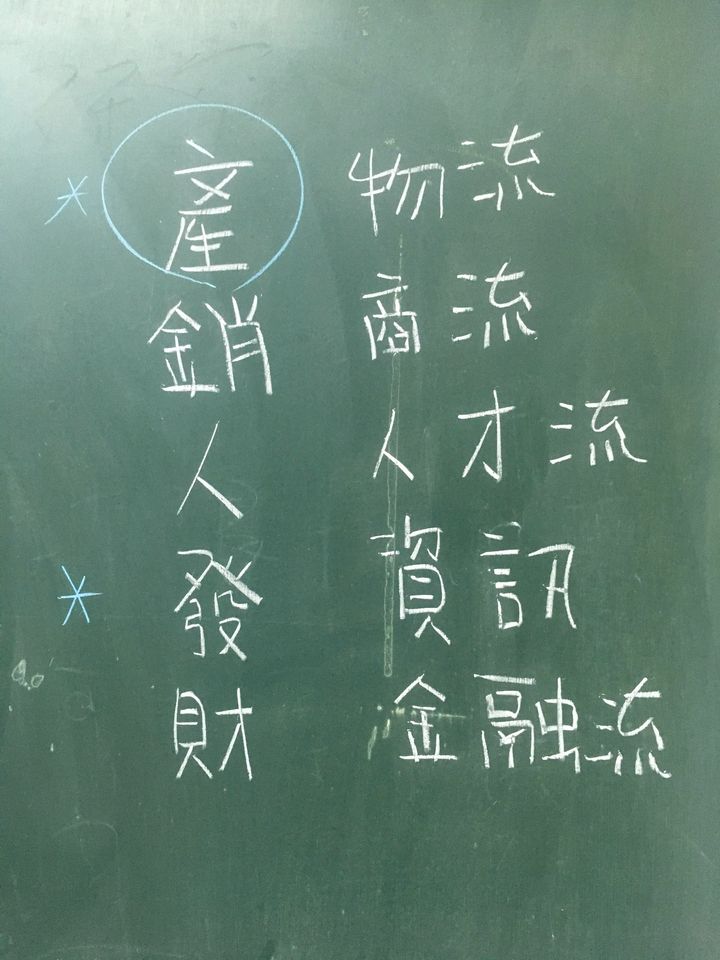 產 物流
銷 商流
人 人才流
發 資訊
財 金融流